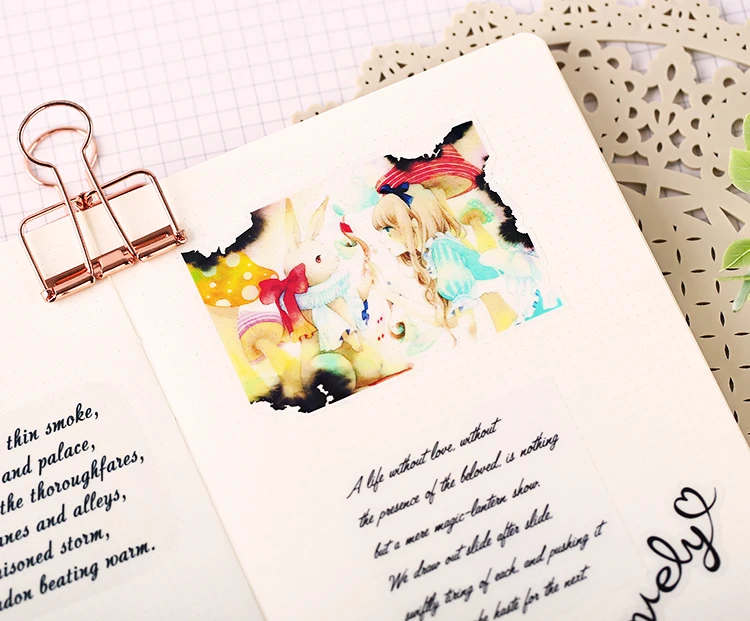 thin smoke,
and palace,
the thoroughfares,
and alleys,
storm,
beating warm.
A life without love, without
the presence of the beloved, is nothing
but a mere magic-lantern show.
We draw out slide after slide,
swiftly tiring of each, and pushing it
haste for the next.